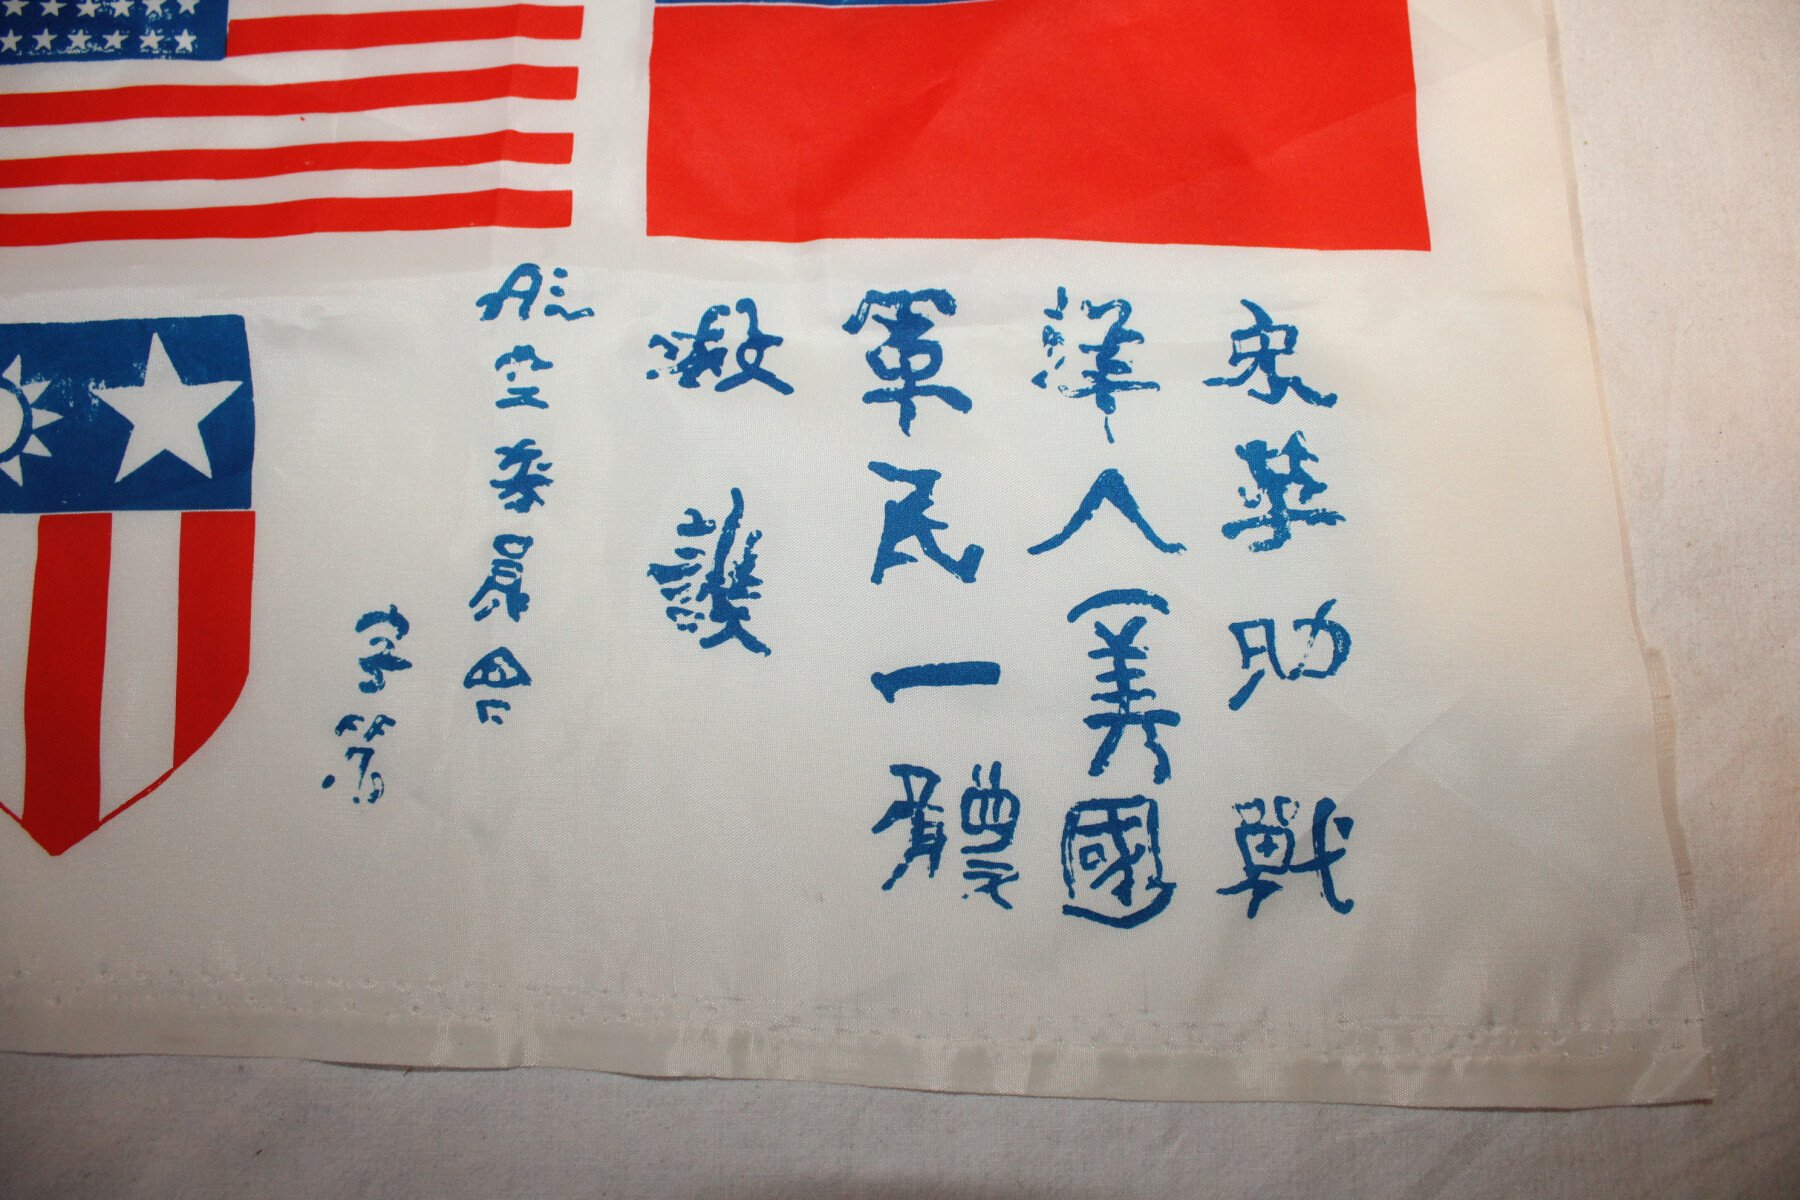 來華助戰
洋人(美國
軍民一體
救護
航空委員會